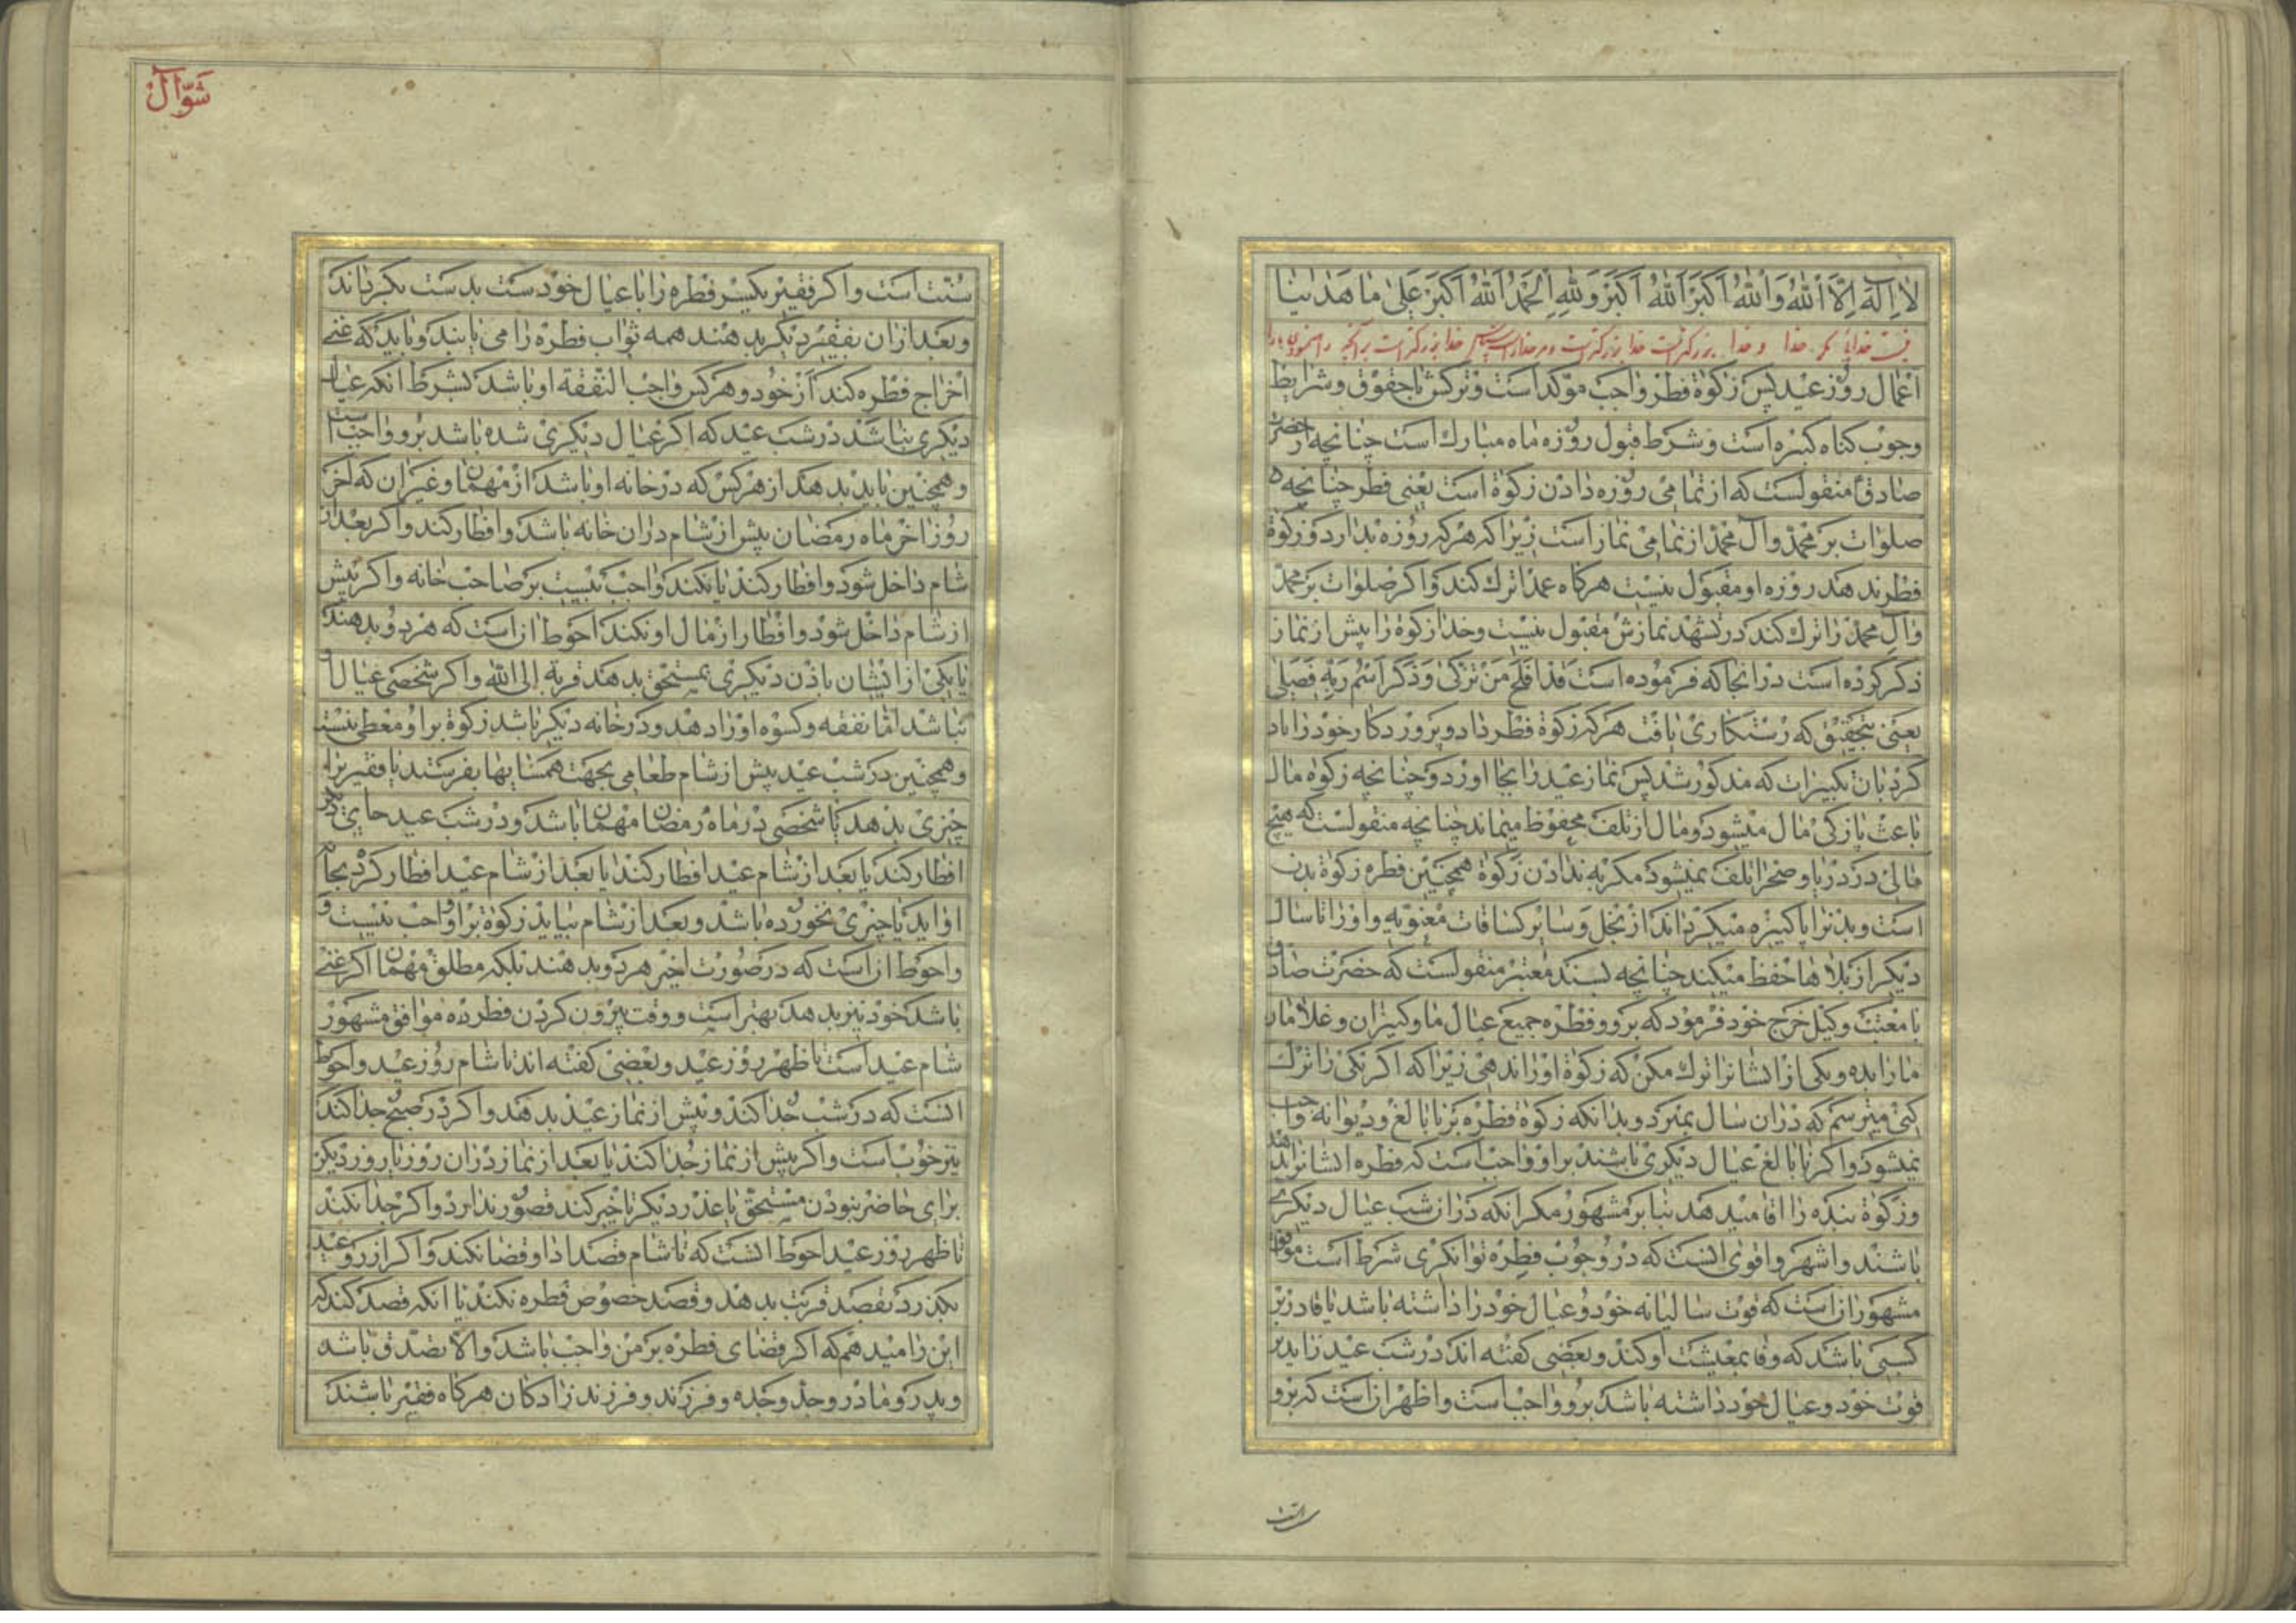 لا اِلٰهَ اِلَّا اللهُ وَاللهُ اَكْبَرُ اَللهُ اَكْبَرُ وَلِلّٰهِ الْحَمْدُ اَللهُ اَكْبَرُ عَلىٰ ما هَدانا
نیست خدائی مگر خدا و خدا بزرگتر است خدا بزرگتر است و مر خدا راست خدا بزرگتر است بر آنچه راهنمود ما را
اعمال روز عید پس زکوة فطر واجب موکد است و ترکش با حقوق و شرایط
وجوب کناه کبیره است و شرط قبول روزه ماه مبارک است چنانچه از حضرت
صادق منقولست که از تمامی روزه دادن زکوة است یعنی فطر چنانچه
صلوات بر محمد و آل محمد از تمامی نماز است زیرا که هر که روزه بدارد و زکوة
فطر ندهد روزه او مقبول نیست هر کاه عمدا ترک کند و اکر صلوات بر محمد
و آل محمد را ترک کند در تشهد نمازش مقبول نیست و خدا زکوة را پیش از نماز
ذکر کرده است در انجا که فرموده است قد افلح من تزکی و ذکر اسم ربه فصلی
یعنی بتحقیق که رستکاری یافت هر که زکوة فطر داد و پروردکار خود را یاد
کرد بان تکبیرات که مذکور شد پس نماز عید را بجا اورد و چنانچه زکوة مال
باعث پازکی مال میشود و مال از تلف محفوظ میماند چنانچه منقولست که هیچ
مالی در دریا و صحرا تلف نمیشود مکر به ندادن زکوة همچنین فطره زکوة بدن
است و بدنرا پاکیزه میکرداند از بخل و سایر کثافات معنویه و او را تا سال
دیکر از بلاها حفظ میکند چنانچه بسند معتبر منقولست که حضرت صادق
بامعتب وکیل خرج خود فرمود که برو و فطره جمیع عیال ما و کنیزان و غلامان
ما را بده و یکی از ایشانرا ترک مکن که زکوة او را ندهی زیرا که اکر یکی را ترک
کنی میترسم که در ان سال بمیرد و بدانکه زکوة فطره بر نابالغ و دیوانه واجب
نمیشود و اکر نابالغ عیال دیکری باشند بر او واجب است که فطره ایشانرا بدهد
و زکوة بنده را اقا میدهد بنا بر مشهور مکر انکه در ان شب عیال دیکری
باشند و اشهر و اقوی انست که در وجوب فطره توانکری شرط است موافق
مشهور ان است که قوت سالیانه خود و عیال خود را داشته باشد یا قادر بر
کسبی باشد که وفا بمعیشت او کند و بعضی کفته اند که در شب عید زاید بر
قوت خود و عیال خود داشته باشد برو واجب است و اظهر ان است که برو
سنت است
شَوّال
سنت است و اکر فقیر یکسر فطره را با عیال خود دست بدست بکرداند
و بعد از ان بفقیر دیکر بدهند همه ثواب فطره را می یابند و باید که غنی
اخراج فطره کند از خود و هر کس واجب النفقة او باشد بشرط انکه عیال
دیکری نباشد در شب عید که اکر عیال دیکری شده باشد برو واجب است
و همچنین باید بدهد از هر کس که در خانه او باشد از مهمان و غیر ان که اخر
روز اخر ماه رمضان پیش از شام در ان خانه باشد و افطار کند و اکر بعد از
شام داخل شود و افطار کند یا نکند واجب نیست بر صاحب خانه و اکر پیش
از شام داخل شود و افطار از مال او نکند احوط ان است که هر دو بدهند
یا یکی از ایشان باذن دیکری بمستحق بدهد قربة الی الله و اکر شخصی عیال او
نباشد اما نفقه و کسوه او را دهد و در خانه دیکر باشد زکوة بر او معطی نیست
و همچنین در شب عید پیش از شام طعامی بجهت همسایها بفرستد یا فقیر را
چیزی بدهد یا شخصی در ماه رمضان مهمان باشد و در شب عید جای دیکر
افطار کند یا بعد از شام عید افطار کند یا بعد از شام عید افطار کرده بجا
او اید یا چیزی نخورده باشد و بعد از شام بیاید زکوة بر او واجب نیست و
و احوط ان است که در صورت اخیر هر دو بدهند بلکه مطلق مهمان اکر غنی
باشد خود نیز بدهد بهتر است و وقت بیرون کردن فطره موافق مشهور
شام عید است تا ظهر روز عید و بعضی کفته اند تا شام روز عید و احوط
انست که در شب جدا کند و پیش از نماز عید بدهد و اکر در صبح جدا کند
نیز خوب است و اکر پیش از نماز جدا کند یا بعد از نماز در ان روز یا روز دیکر
برای حاضر نبودن مستحق یا عذر دیکر تاخیر کند قصور ندارد و اکر جدا نکند
تا ظهر روز عید احوط انست که تا شام قصد ادا و قضا نکند و اکر از روز عید
بکذرد بقصد قربت بدهد و قصد خصوص فطره نکند یا انکه قصد کند که
این را میدهم که اکر قضای فطره بر من واجب باشد و الا تصدق باشد
و پدر و مادر و جد و جده و فرزند و فرزند زادکان هر کاه فقیر باشند